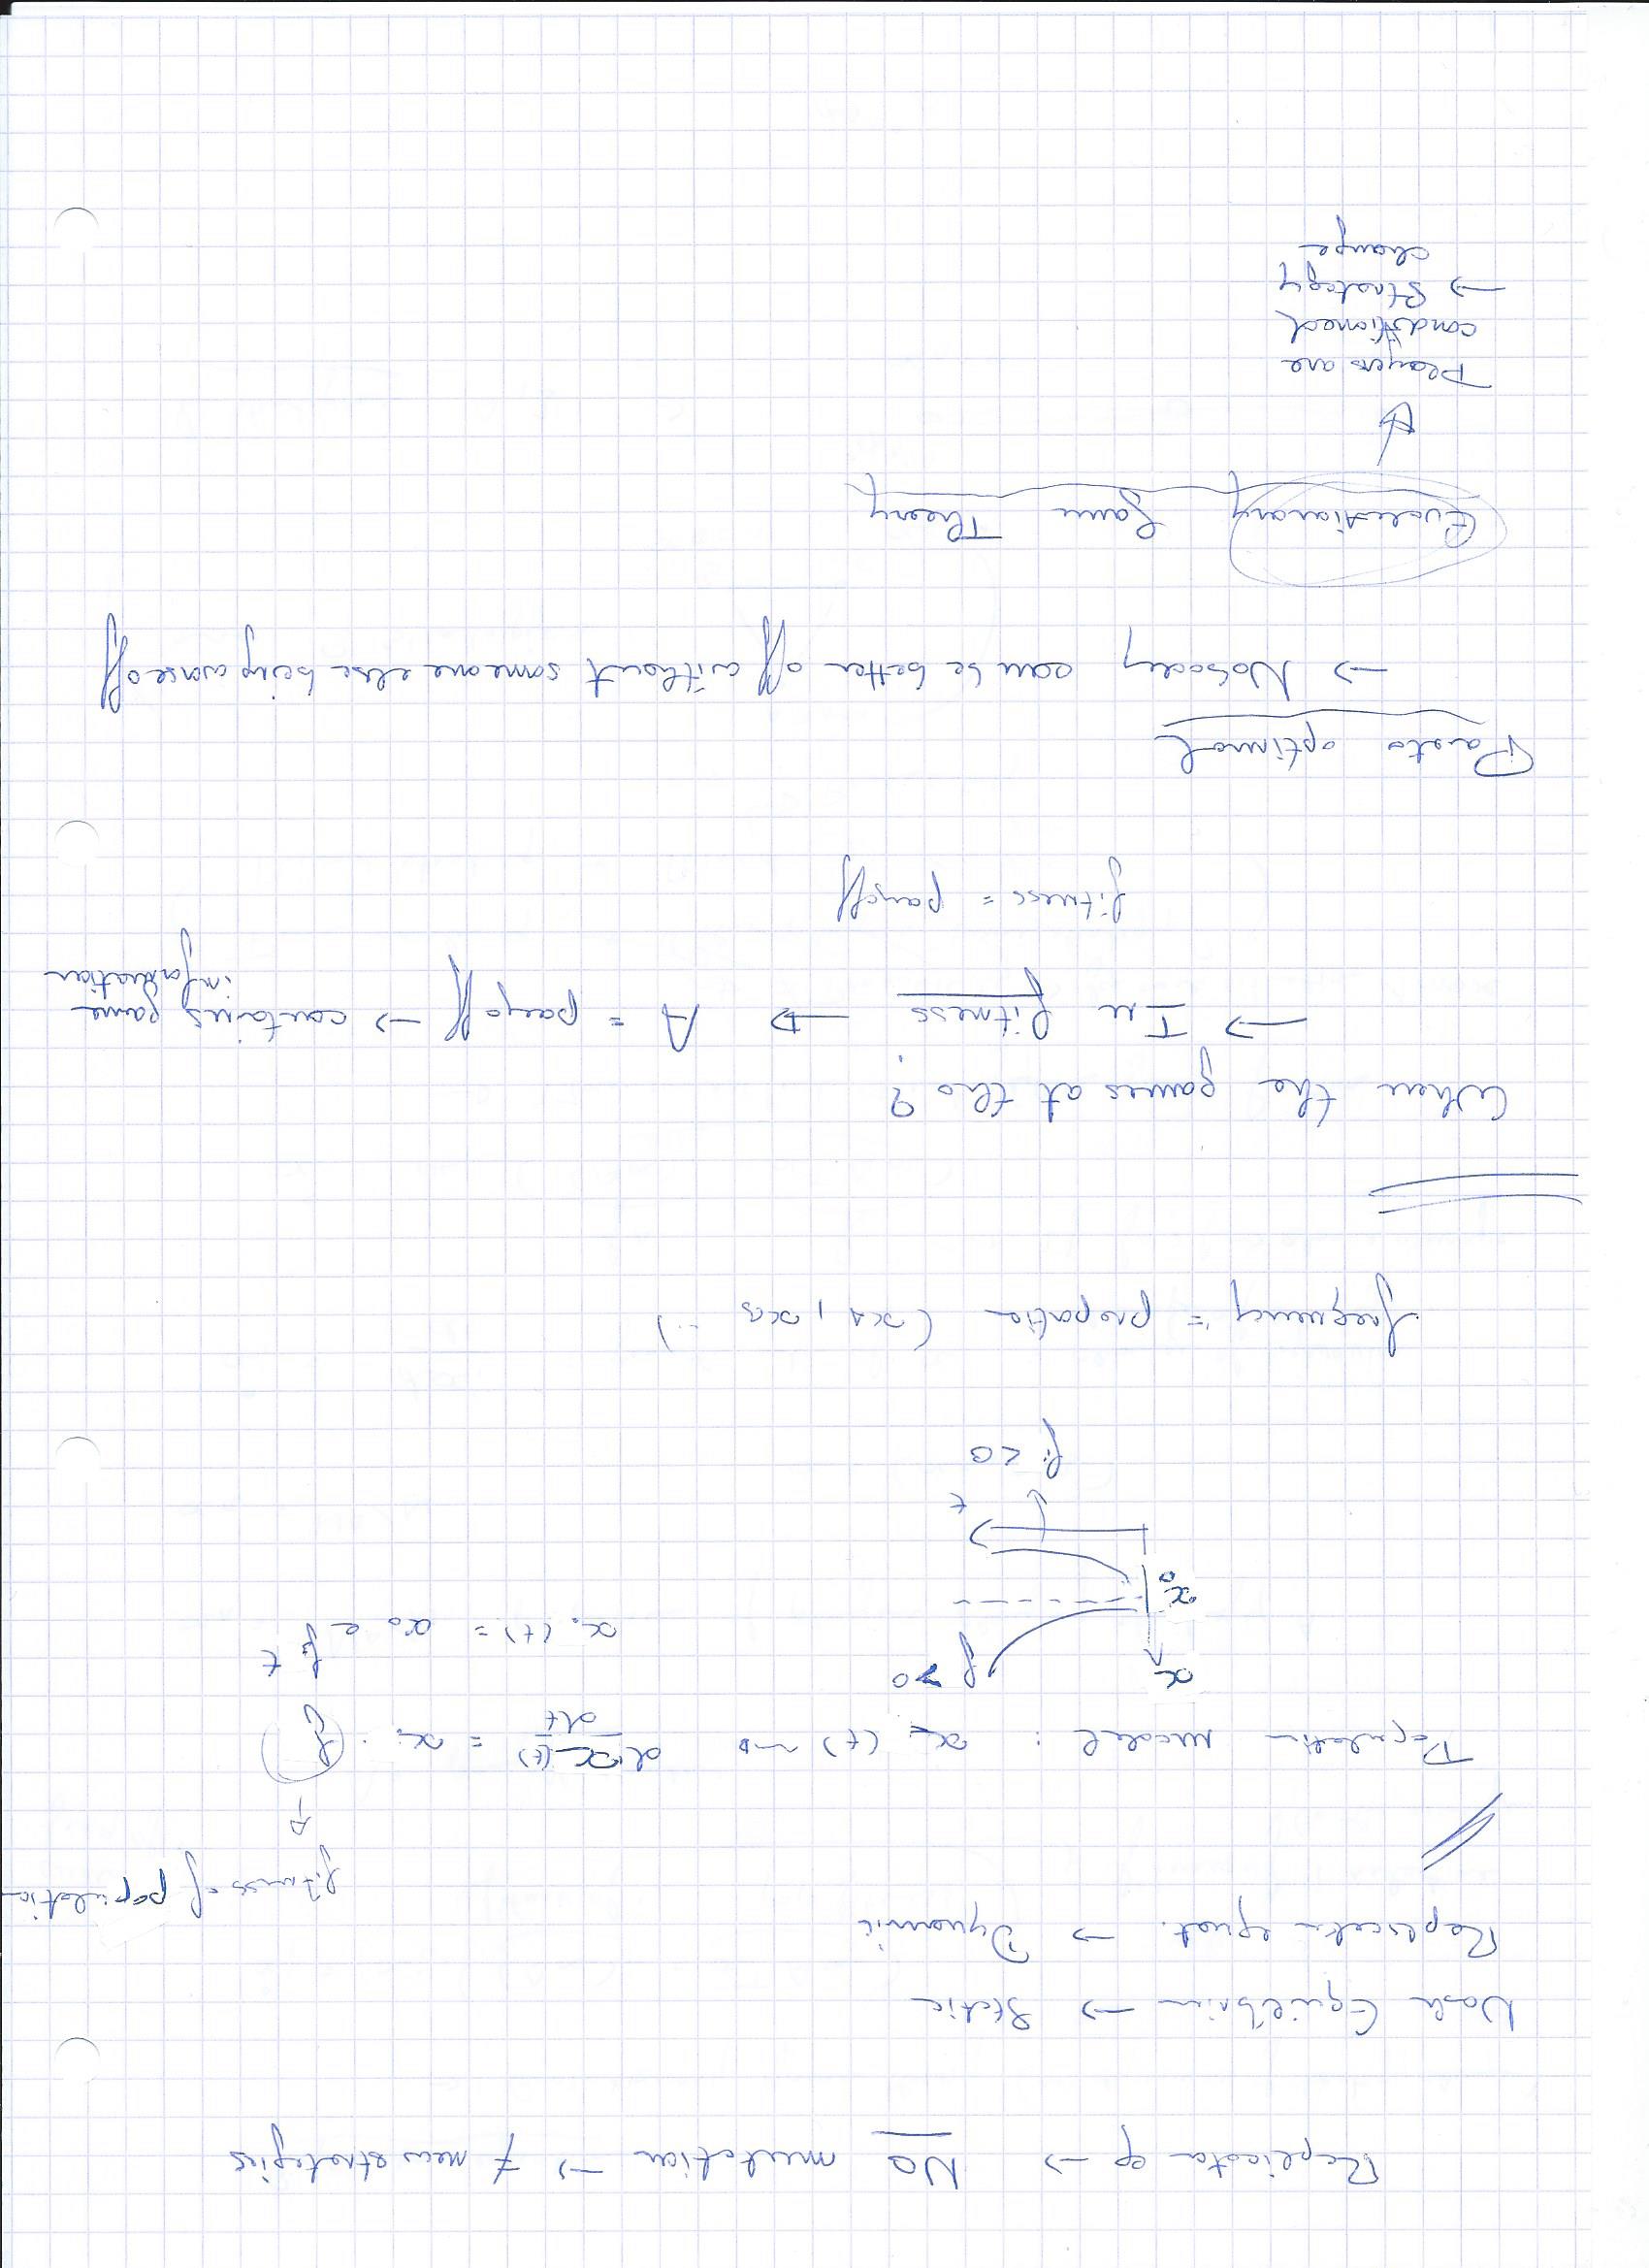 Replicator eq → No mutation → ≠ new strategies
Nash Equilibrium → Static
Replicator equat. → Dynamic
fitness of population
Population model : x_i (t) ⇝ dx_i(t)/dt = x_i · f_i
x
f > 0
x_i (t) = x_0 e^{f_i t}
x_0
t
f_i < 0
frequency = proportion (x_A, x_B ...)
When the games at tho ?
→ In fitness → A = payoff → contains game
information
fitness = payoff
Pareto optimal
→ Nobody can be better off without someone else being worse off
Evolutionary Game Theory
Players are
conditioned
→ Strategy
change